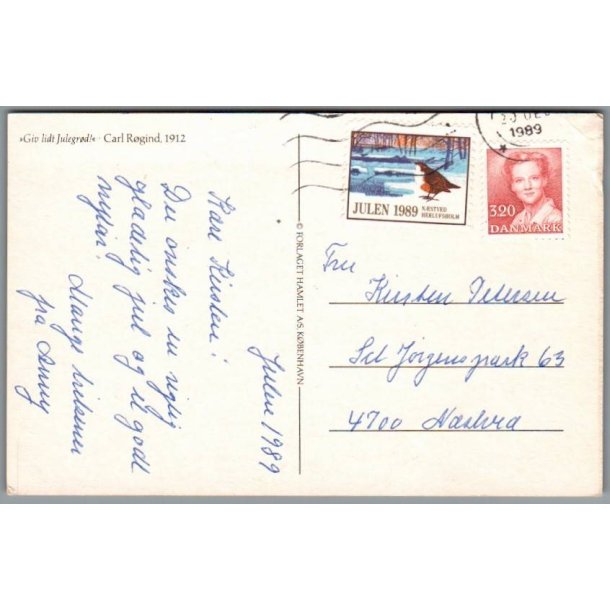 »Giv lidt Julegrød!« · Carl Røgind, 1912
Julen 1989
Kære Kirsten!
Du ønskes en rigtig
glædelig jul og et godt
nytår.
Mange hilsner
fra Anny
© FORLAGET HAMLET A/S. KØBENHAVN
JULEN 1989
NÆSTVED
HERLUFSHOLM
1989
320
DANMARK
Fru
Kirsten Petersen
Sct Jørgenspark 63
4700 Næstved